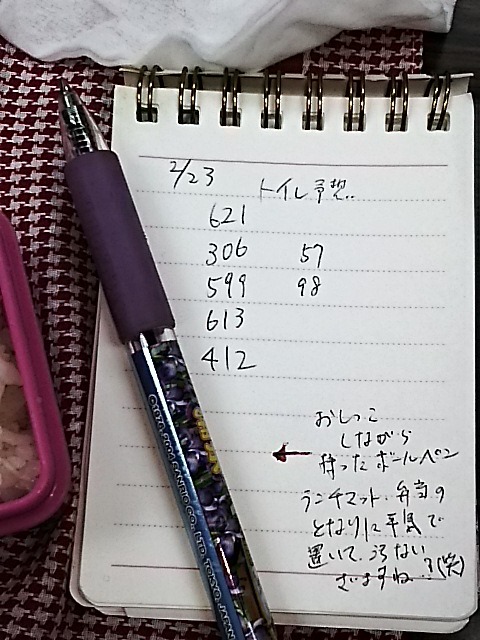 2/23 トイレ予想..
621
306 57
599 98
613
412
おしっこ
しながら
持ったボールペン
ランチマット、弁当の
となりに平気で
置いて
ざいますね..?(笑)
©1976, 2004 SANRIO CO., LTD. TOKYO, JAPAN